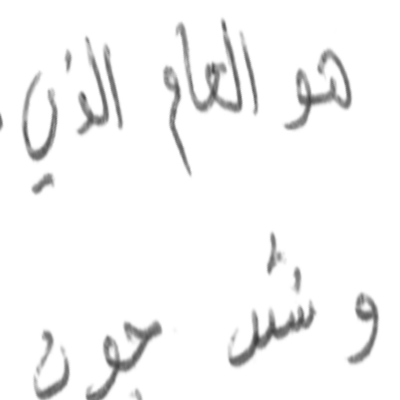 هو العام الذي
و شد جون